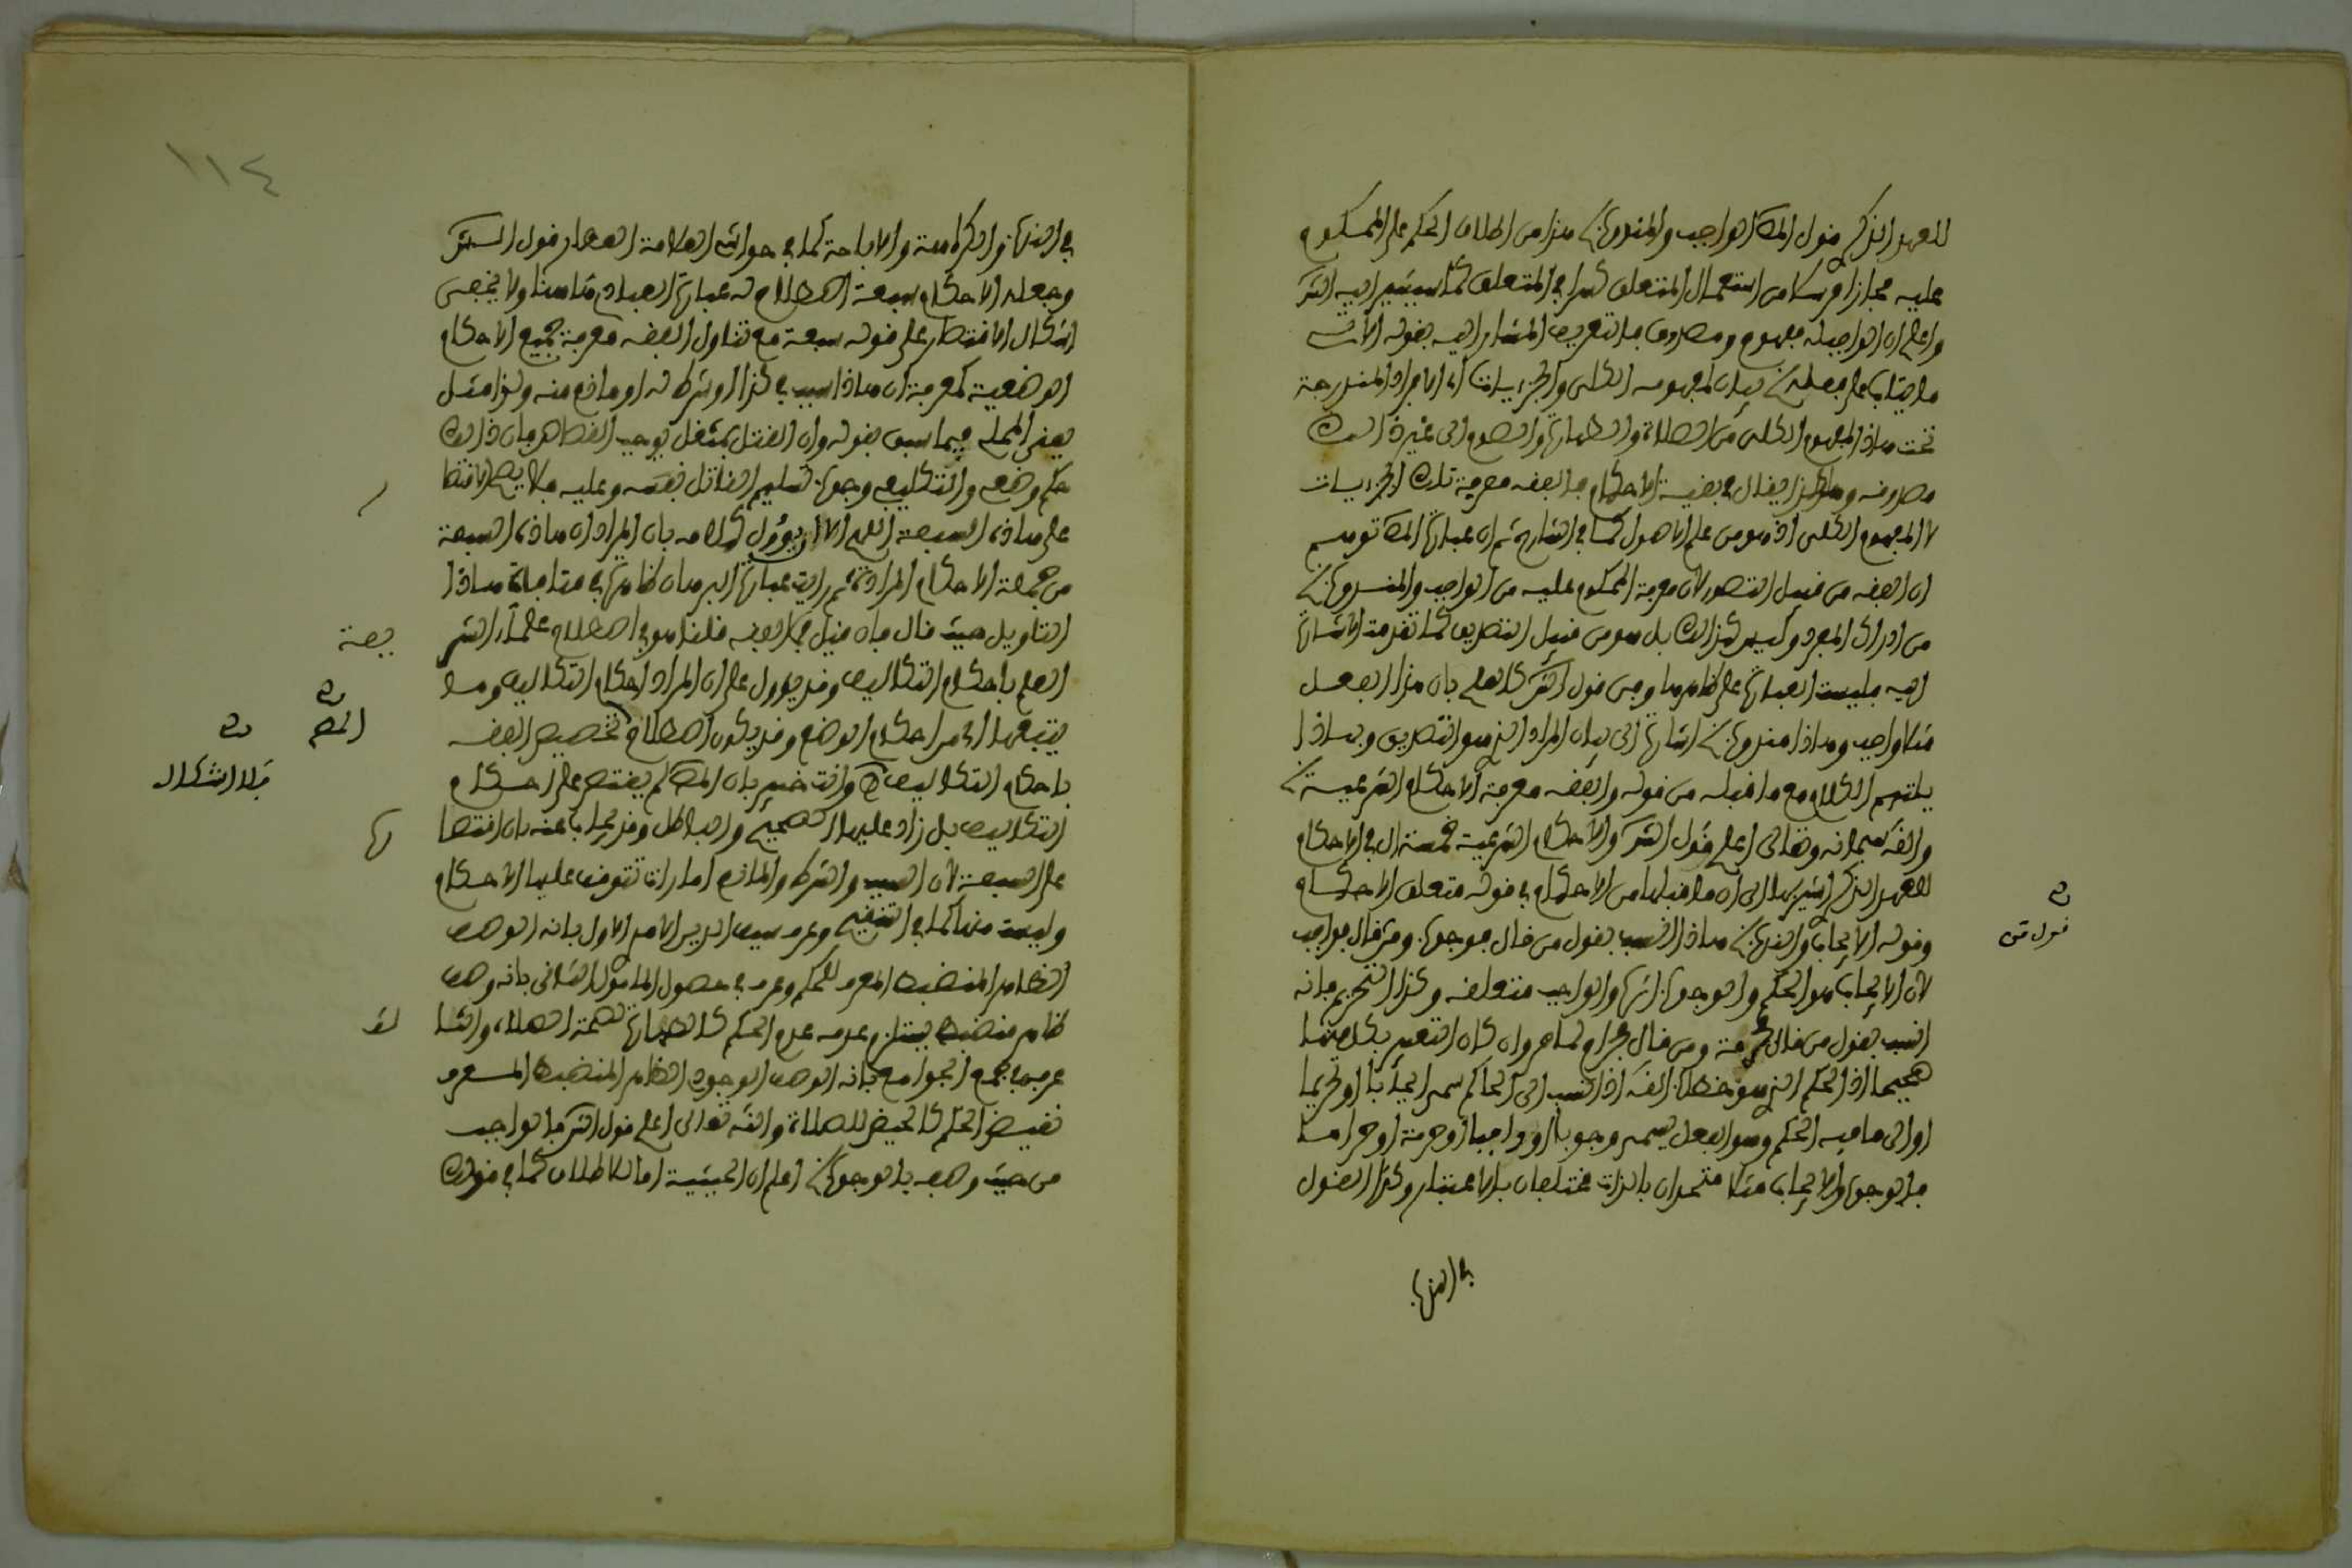 للعهد الذكري قول المص الواجب والمندوب هذا من اطلاق الحكم على المحكوم
عليه مجازا مرسلا من استعمال المتعلق كسرا في المتعلق كما سيشير اليه الشر
واعلم ان الواجب له مفهوم ومصدوق فالتعريف المشار اليه بقوله الاتي
ما يثاب على فعله بيان لمفهومه الكلي والجزييات اي الافراد المندرجة
تحت هذا المفهوم الكلي من الصلاة والطهارة والصوم الى غير ذالك
مصدوقه وهكذا يقال في بقية الاحكام فالفقه معرفة تلك الجزييات
لا المفهوم الكلي اذ هو من علم الاصول كما في الشارح ثم ان عبارة المص توهم
ان الفقه من قبيل التصور لان معرفة المحكوم عليه من الواجب والمندوب
من ادراك المفرد وليس كذالك بل هو من قبيل التصديق كما تقدمت الاشارة
اليه فليست العبارة على ظاهرها وفي قول الشر كالعلم بان هذا الفعل
مثلا واجب وهاذا مندوب اشارة الى بيان المراد الذي هو التصديق وبهاذا
يلتئم الكلام مع ما قبله من قوله والفقه معرفة الاحكام الشرعية
والله سبحانه وتعالى اعلم قول الشر والاحكام الشرعية خمسة ال في الاحكام
للعهد الذكري اشير بها الى ان ما قبلها من الاحكام في قوله متعلق الاحكام
وقوله الايجاب والندب هاذا انسب بقول من قال وجوب ومن قال واجب
لان الايجاب هو الحكم والوجوب اثره والواجب متعلقه وكذا التحريم فانه
انسب بقول من قال حرمة ومن قال حرام كما هو وان كان التعبير بكل منهما
صحيحا اذ الحكم الذي هو خطاب الله اذا نسب الى الحاكم سمي ايجابا او تحريما
او الى ما فيه الحكم وهو الفعل يسمى وجوبا او واجبا او حرمة او حراما
فالوجوب والايجاب مثلا متحدان بالذات مختلفان بالاعتبار وكذا القول
قول من
في الندب
١١٤
في الندب والكراهة والاباحة كما في حواشي العلامة العطار قول الشر
وجعله الاحكام سبعة اصطلاح له عبارة العبادي هنا ولا يخفى
اشكال الاقتصار على قوله سبعة مع تناول الفقه معرفة جميع الاحكام
الوضعية كمعرفة ان هاذا سبب في كذا او شرط له او مانع منه ولذا مثل
يعني المحلي فيما سبق بقوله وان القتل بمثقل يوجب القصاص فان ذالك
حكم وضعي والتكليفي وجوب تسليم القاتل نفسه وعليه فلا يصح الاقتصا
ر
على هاذه السبعة اللهم الا ان يؤول كلامه بان المراد ان هاذه السبعة
من جملة الاحكام المرادة ثم رايت عبارة البرهان ظاهرة في منافاة هاذا
التاويل حيث قال فان قيل فما الفقه قلنا هو في اصطلاح علماء الشر
يعة
العلم باحكام التكاليف وقد يؤول على ان المراد احكام التكاليف وما
يتبعها الى من احكام الوضع وقد يكون اصطلاح تخصيص الفقه
باحكام التكاليف وانت خبير بان المص لم يقتصر على احكام
المص
فلا اشكال
التكاليف بل زاد عليها الصحيح والباطل وقد يجاب عنه بان اقتصا
رها
على السبعة لان السبب والشرط والمانع امارات تتوقف عليها الاحكام
وليست منها كما في التنقيح وعرف سيف الدين الامدي الاول بانه الوصف
الظاهر المنضبط المعرف للحكم وعرف في حصول المامول الثاني بانه وصف
ظاهر منضبط يستلزم عدمه عدم الحكم كالطهارة لصحة الصلاة والثا
لث
عرفه في جمع الجوامع بانه الوصف الوجودي الظاهر المنضبط المعرف
نقيض الحكم كالحيض للصلاة والله تعالى اعلم قول الشر فالواجب
من حيث وصفه بالوجوب اعلم ان الحيثية اما للاطلاق كما في قولك